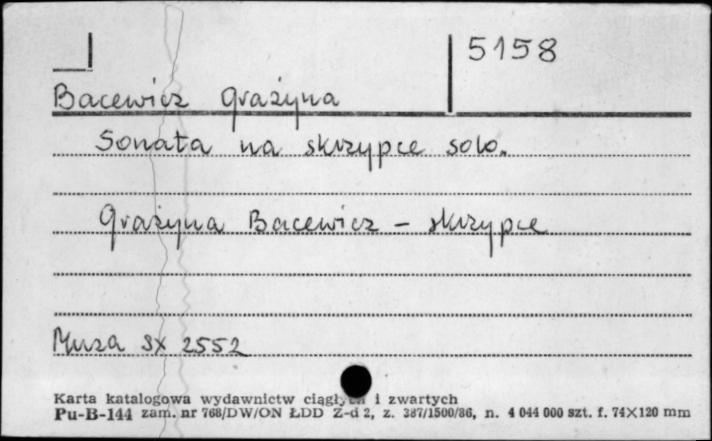 5158
Bacewicz Grażyna
Sonata na skrzypce solo.
Grażyna Bacewicz – skrzypce
Muza SX 2552
Karta katalogowa wydawnictw ciągłych i zwartych
Pu-B-144 zam. nr 768/DW/ON ŁDD Z-d 2, z. 387/1500/86, n. 4 044 000 szt. f. 74×120 mm